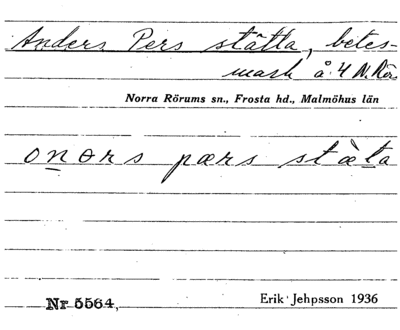 Anders Pers stätta, betes-
mark å 4 N. Rör.
Norra Rörums sn., Frosta hd., Malmöhus län
onørs pærs stæ̀ta
Nr 5564,
Erik Jehpsson 1936